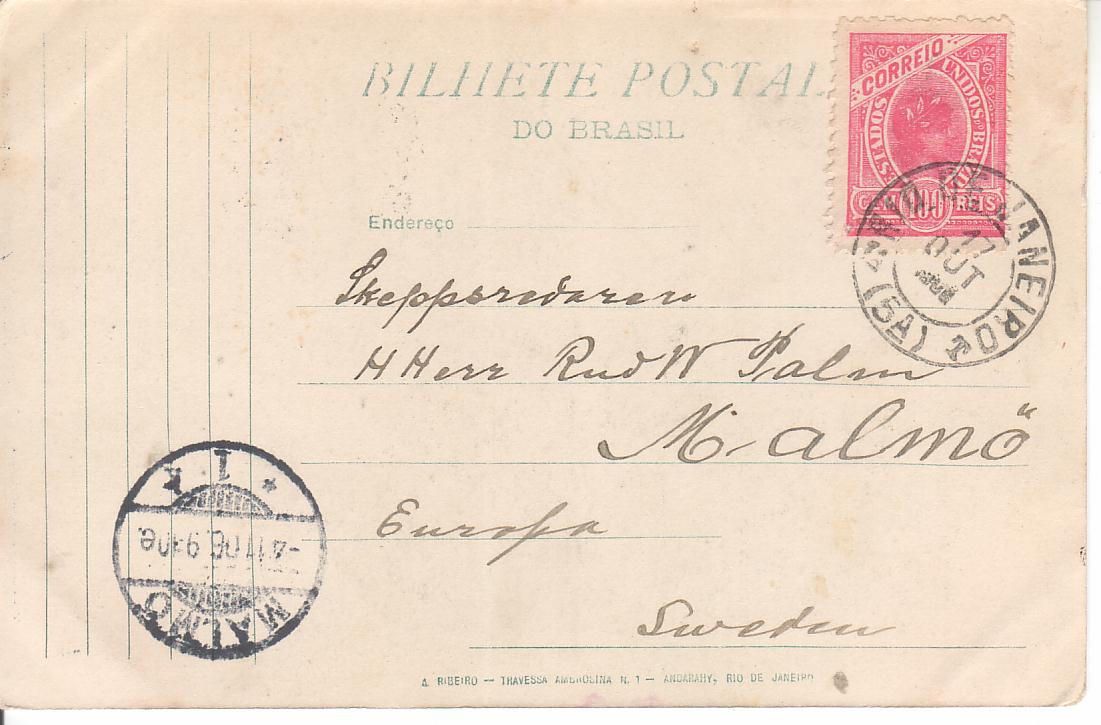 BILHETE POSTAL
DO BRASIL
CORREIO
ESTADOS UNIDOS DO BRAZIL
CEM 100 REIS
RIO DE JANEIRO
17
OUT
(5A)
Endereço
Skeppsredaren
H Herr Rud W Palm
Malmö
Europa
Sweden
1
MALMÖ
A. RIBEIRO — TRAVESSA AMBROSINA N. 1 — ANDARAHY, RIO DE JANEIRO